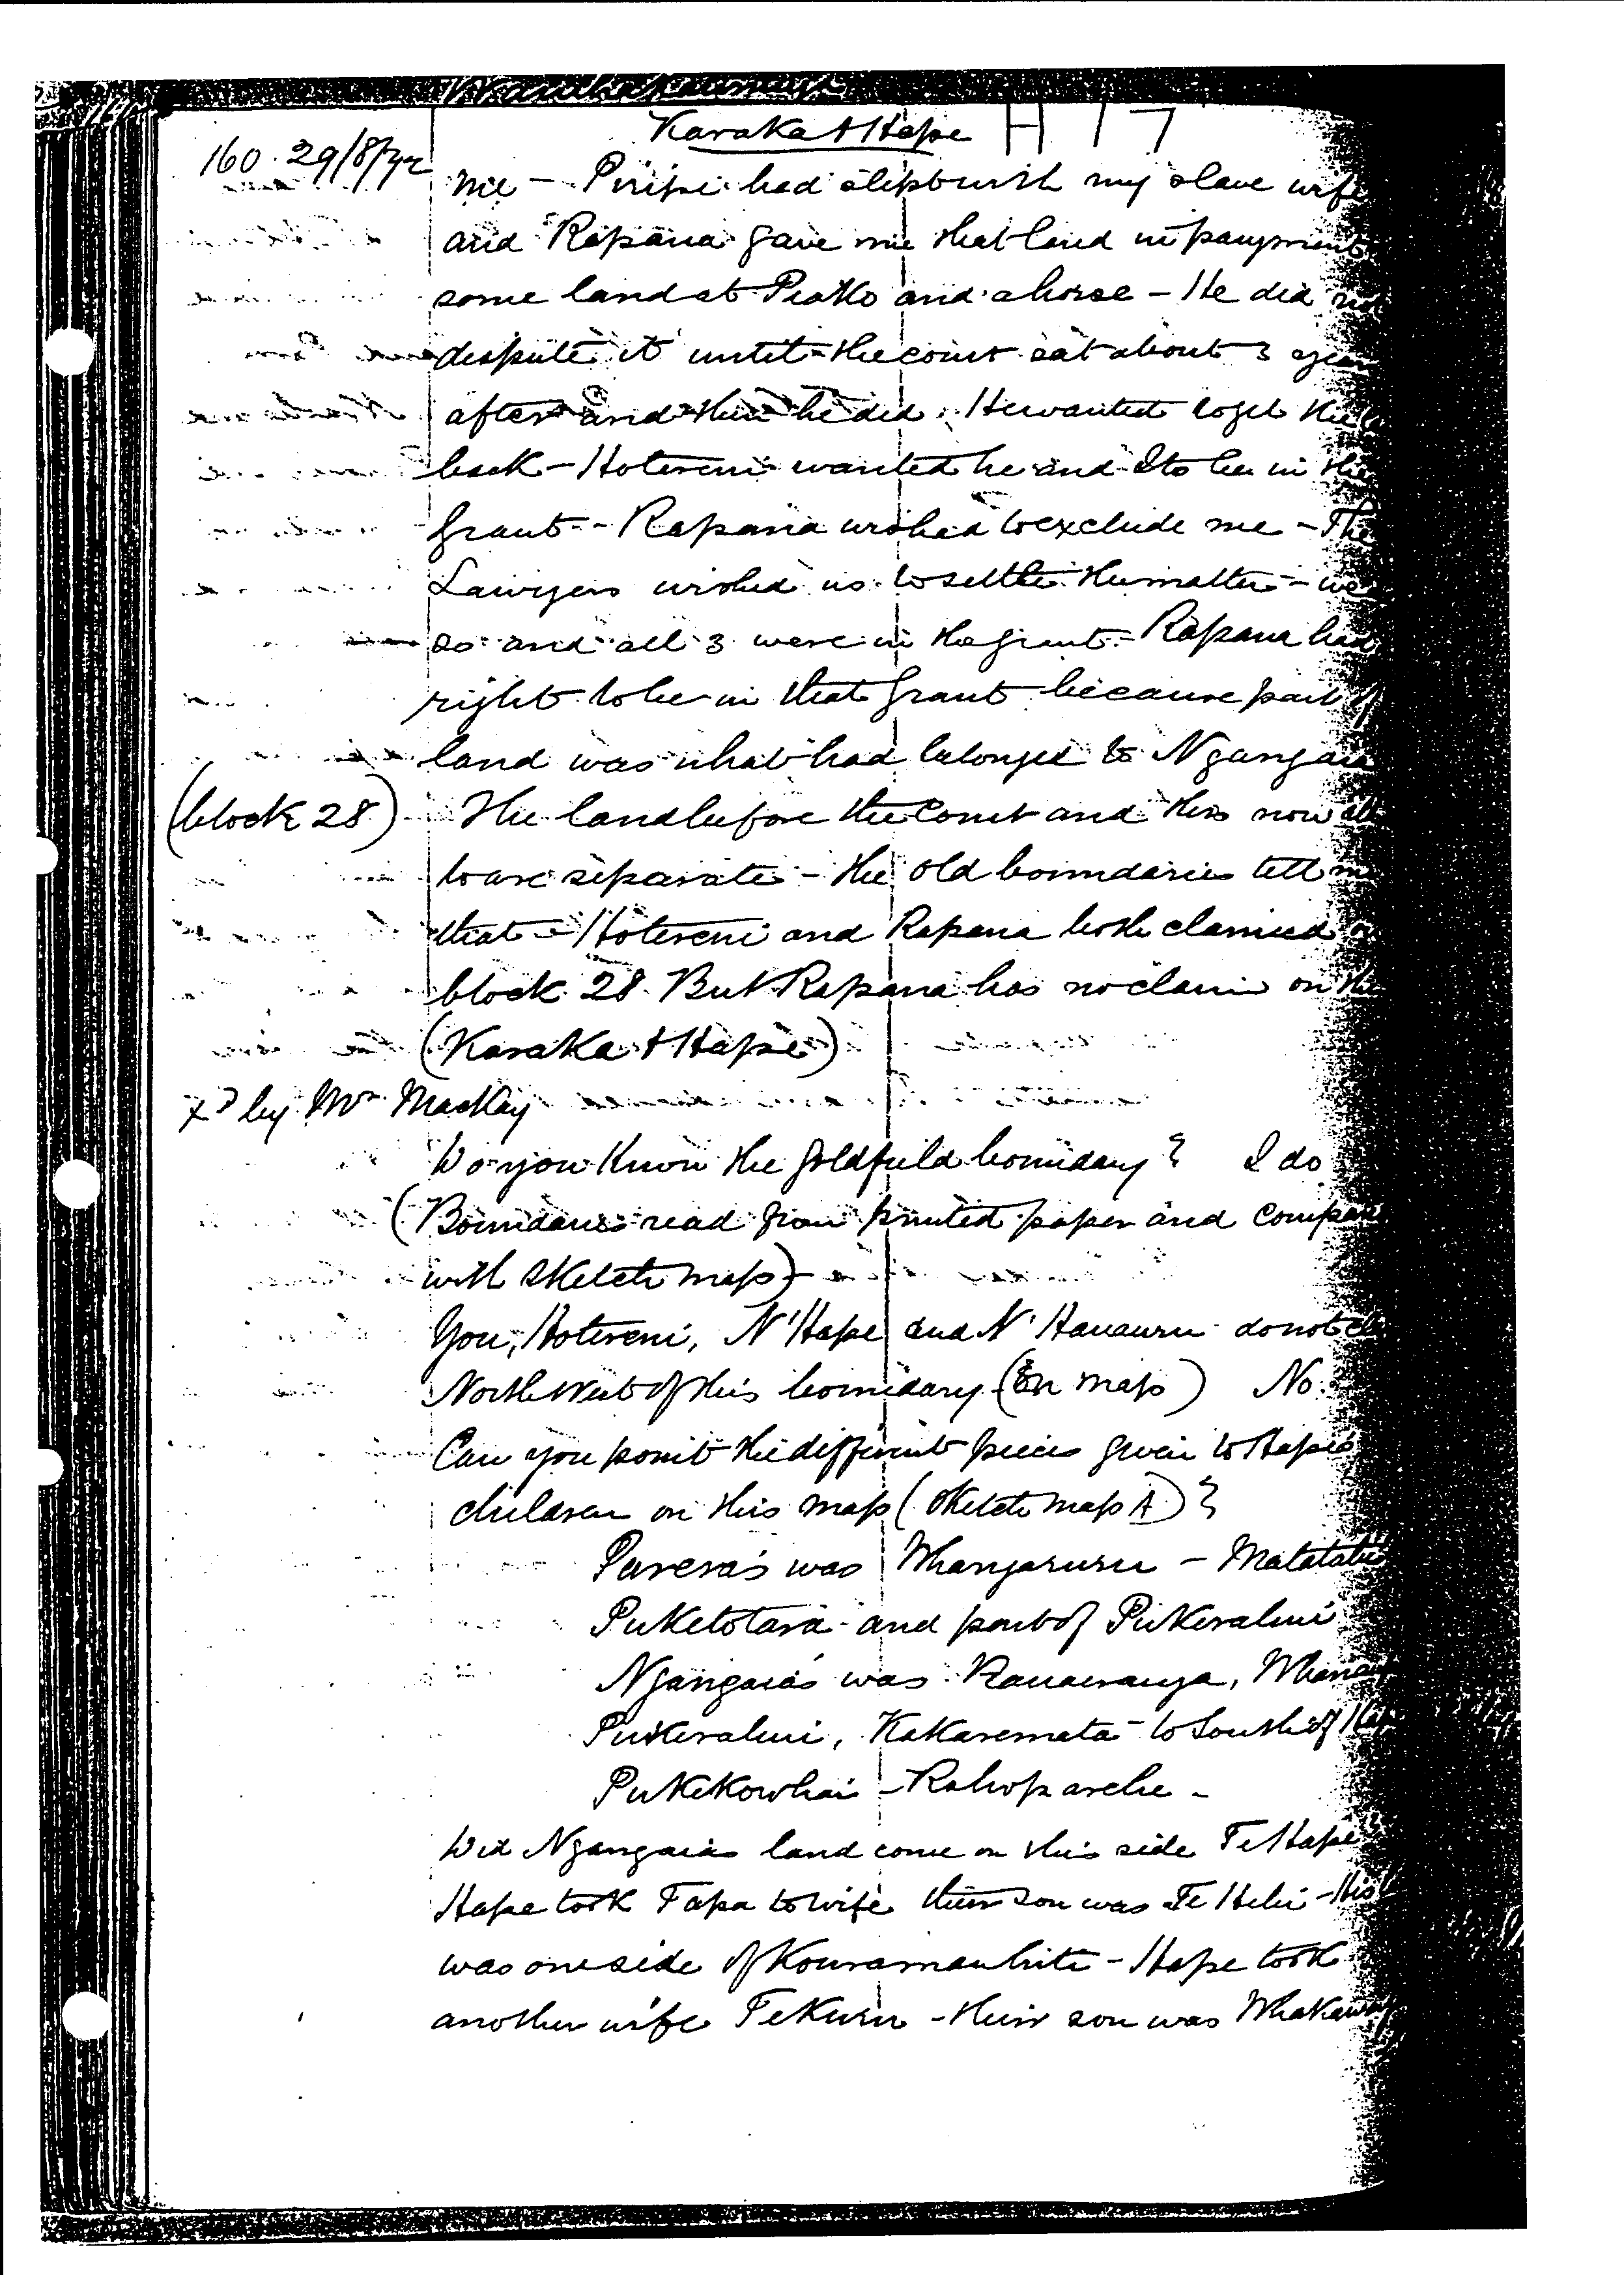 Karaka & Hape H 17
160. 29/8/72
me - Piripi had slept with my slave wife
and Rapana gave me that land in payment
some land at Piako and a horse - He did not
dispute it until the court sat about 3 years
after and then he did. He wanted to get the
back - Hotereni wanted he and I to be in the
grant - Rapana wished to exclude me - The
Lawyers wished us to settle the matter - we
so and all 3 were in the grant - Rapana had
right to be in that grant because part of
land was what had belonged to Ngangaia
(block 28) The land before the Court and this now
are separate - the old boundaries tell me
that - Hotereni and Rapana both claimed
block 28. But Rapana has no claim on the
(Karaka & Hape)
xd by Mr Mackay
Do you know the goldfield boundary? I do
(Boundaries read from printed paper and compared
with sketch map) -
You, Hotereni, N'Hape and N'Hauauru do not
North West of this boundary (on map) No.
Can you point the different pieces given to Hape's
children on this map (sketch map A)?
Parera's was Whangaruru - Matatahi
Puketotara - and part of Pukerahui
Ngangaia's was Rauawanga,
Pukerahui, Kakaremata to South of
Pukekowhai - Rahoparche -
Did Ngangaias land come on this side Te Hape?
Hape took Tapa to wife their son was Te Hihi - His
was one side of Kouramauhiti - Hape took
another wife Te Kuru - their son was